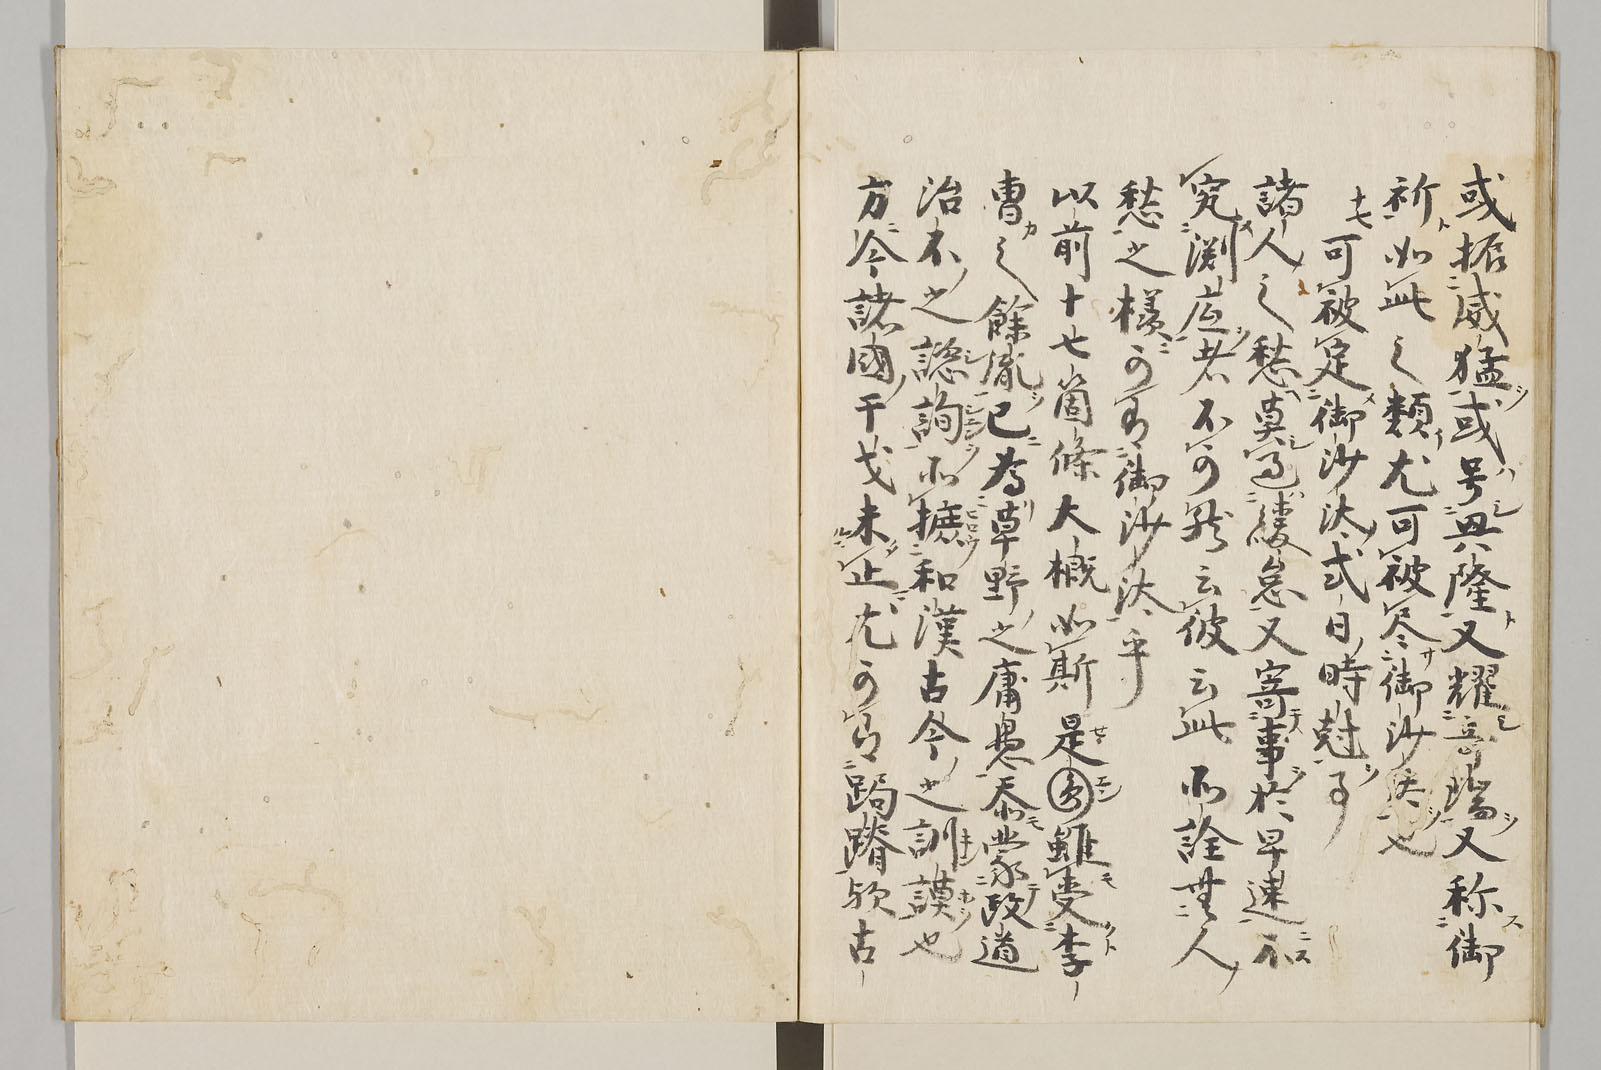 或振威猛或号興隆又耀奇瑞又称御
祈如此之類尤可被尽御沙汰也
十七可被定御沙汰式日時尅事
諸人之愁莫過緩怠又寄事於早速不
究渕底者不可然云彼云此所詮無人
愁之様可有御沙汰乎
以前十七箇條大概如斯是圓雖受李
曹之餘胤已為草野之庸愚忝蒙政道
治不之諮詢所摭和漢古今之訓謨也
方今諸國干戈未止尤可有跼蹐欤古